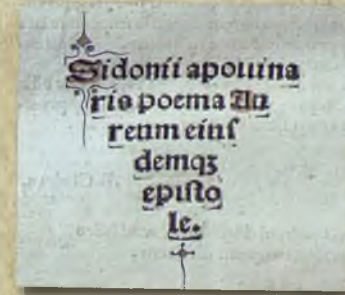 Sidonii apollina
ris poema Au
reum eiuſ
demqꝫ
epiſto
le.